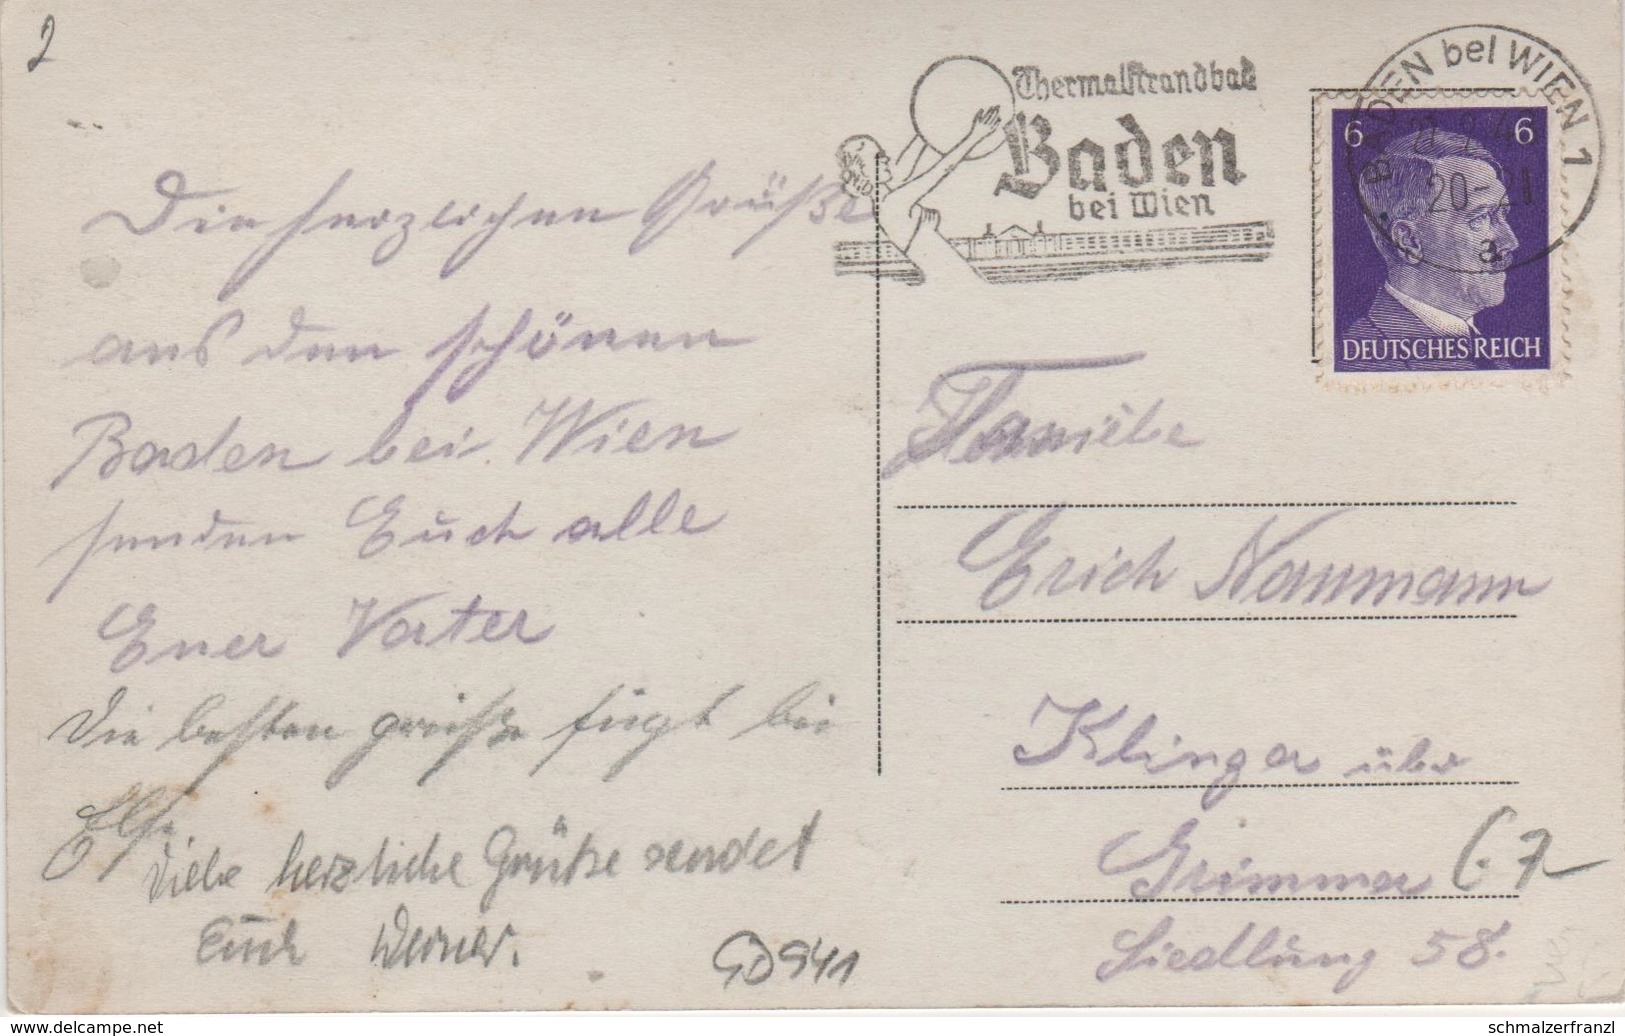 2
Die herzlichen Grüße
aus den schönen
Baden bei Wien
senden Euch alle
Euer Vater
Die besten grüße fügt bei
Else
Viele herzliche Grüße sendet
Euch Werner.
Thermalstrandbad
Baden
bei Wien
BADEN bei WIEN 1
20-21
a
6 6
DEUTSCHES REICH
Familie
Erich Naumann
Klinga über
Grimma
Siedlung 58.
GD941
www.delcampe.net
schmalzerfranzl